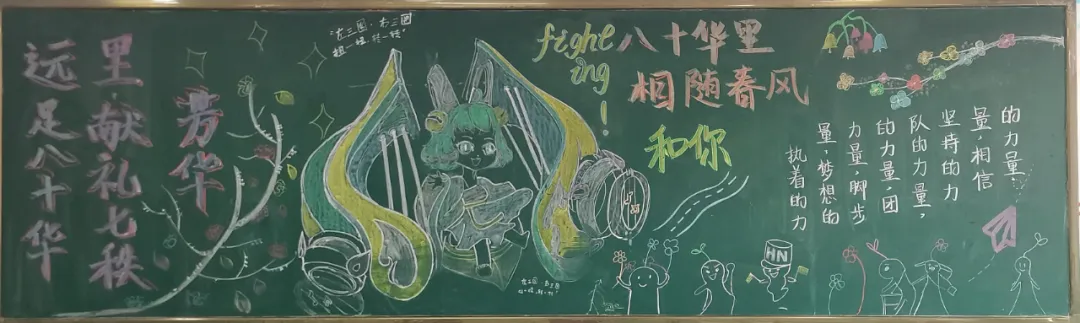 远足八十华
里,献礼七秩
芳华
左三圈·右三圈
fighe
ing!
八十华里
相随春风
和你
执着的力
量,梦想的
力量,脚步
的力量,团
队的力量,
坚持的力
量,相信
的力量
HN